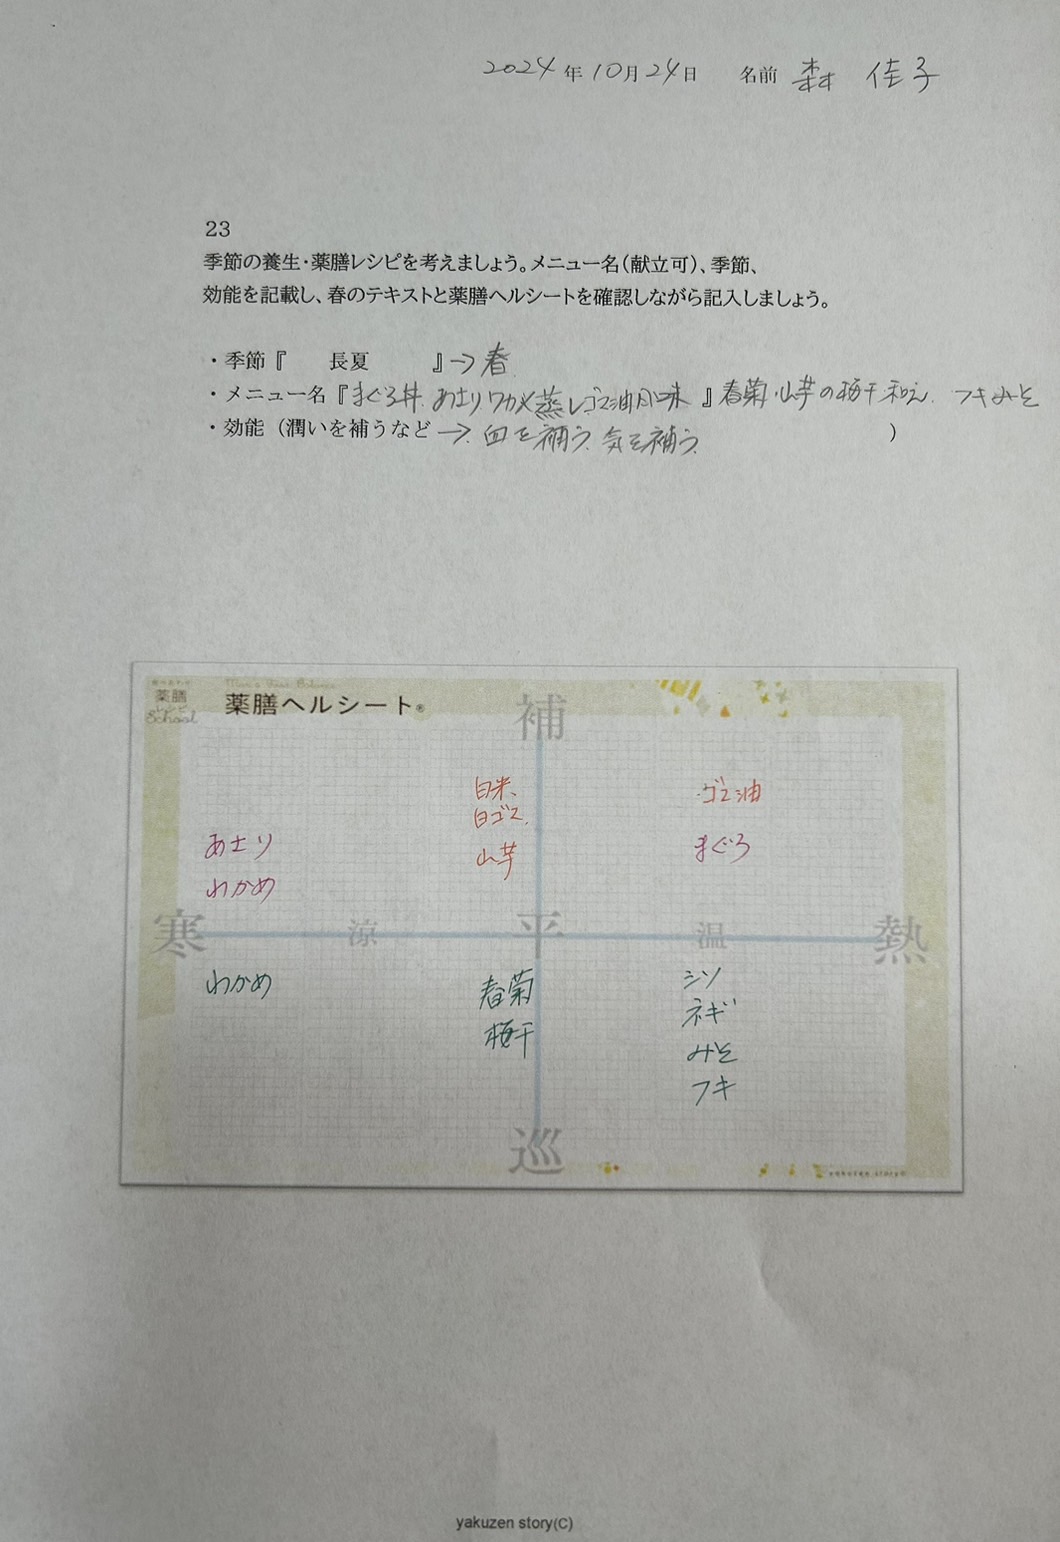 2024年10月24日 名前 森 佳子
23
季節の養生・薬膳レシピを考えましょう。メニュー名（献立可）、季節、
効能を記載し、春のテキストと薬膳ヘルシートを確認しながら記入しましょう。
・季節『 長夏 』→春
・メニュー名『まぐろ丼、あさりワカメ蒸しゴマ油風味 』春菊・山芋の梅干和え、フキみそ
・効能（潤いを補うなど→、血を補う、気を補う、 ）
薬膳
レシピ
School
薬膳ヘルシート®
補
白米、 ゴマ油
白ゴマ、
あさり 山芋 まぐろ
わかめ
寒 涼 平 温 熱
わかめ 春菊 シソ
梅干 ネギ
みそ
フキ
巡
yakuzen story(C)